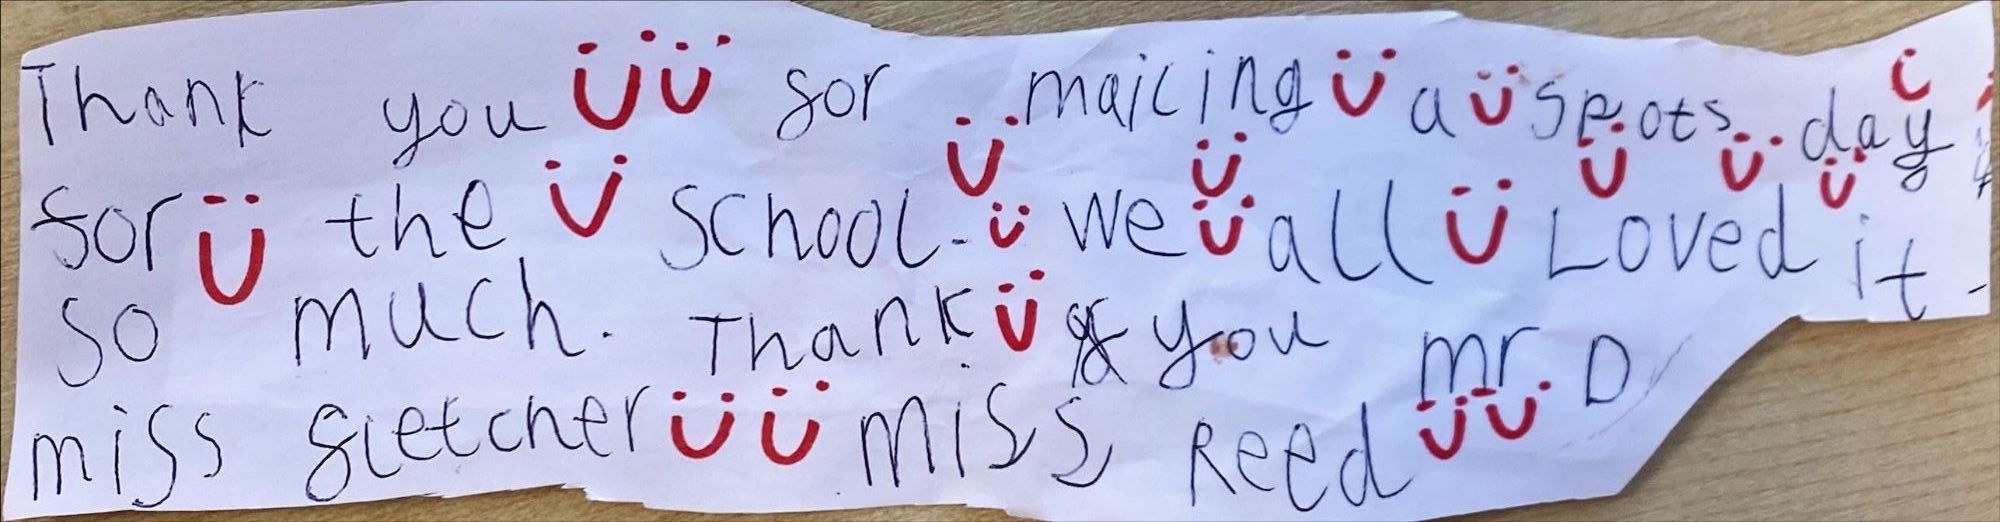 Thank you for mailing a spots day
for the school. we all Loved it.
so much. Thank you mr D
miss fletcher miss Reed